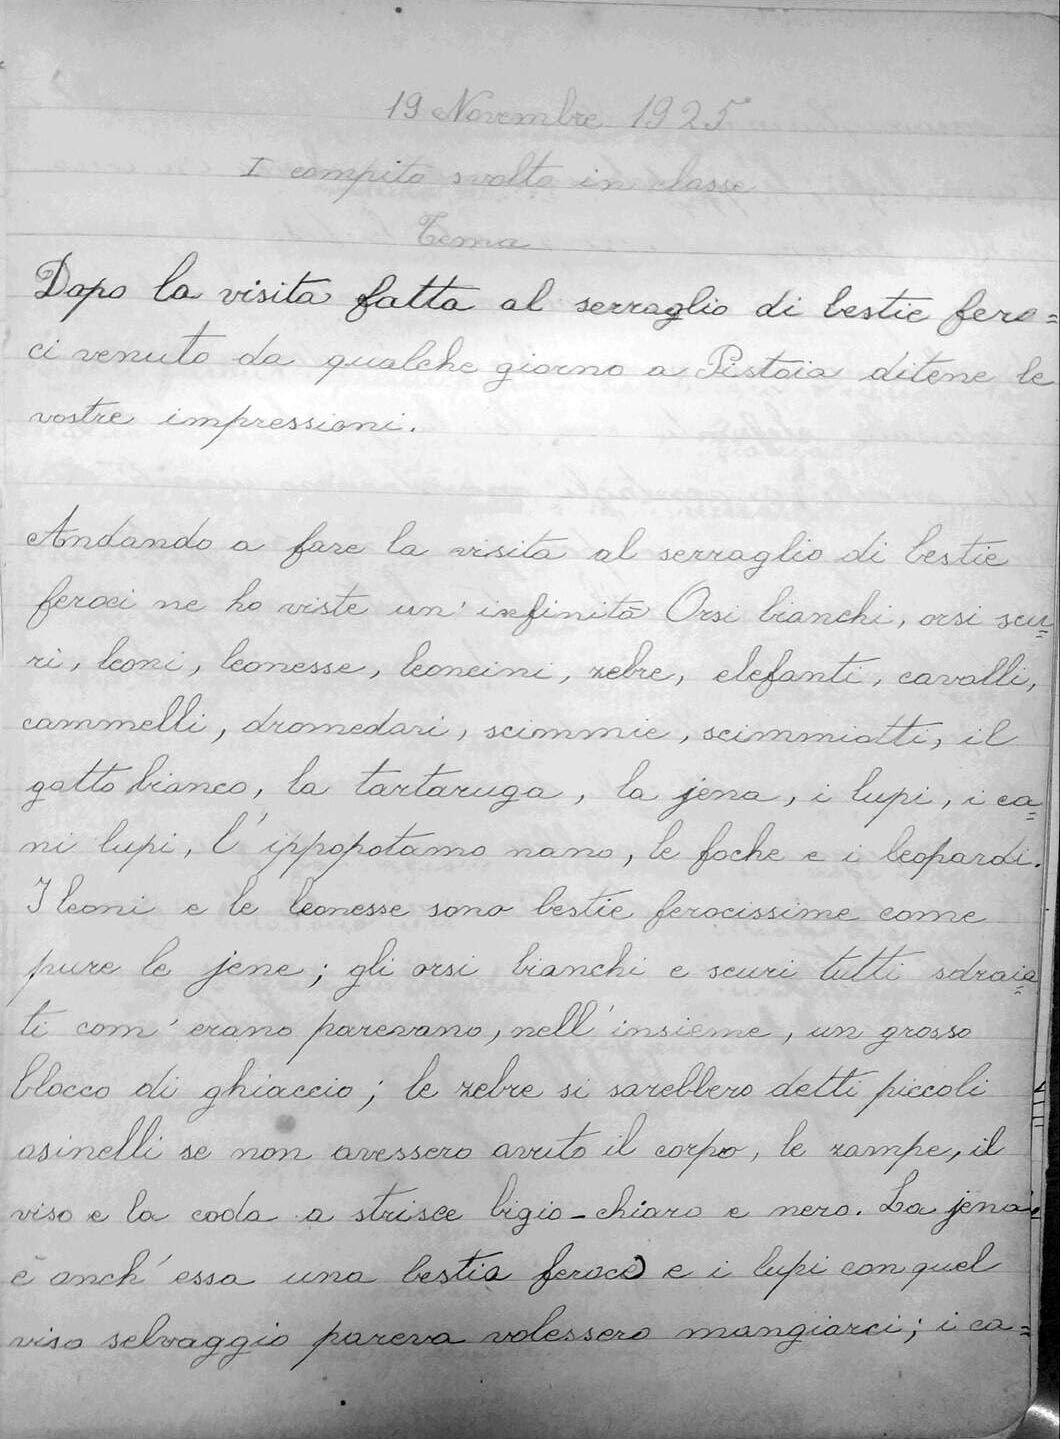 19 Novembre 1925
I compito svolto in classe
Tema
Dopo la visita fatta al serraglio di bestie fero=
ci venuto da qualche giorno a Pistoia ditene le
vostre impressioni.
Andando a fare la visita al serraglio di bestie
feroci ne ho viste un' infinità Orsi bianchi, orsi scu=
ri, leoni, leonesse, leoncini, zebre, elefanti, cavalli,
cammelli, dromedari, scimmie, scimmiotti, il
gatto bianco, la tartaruga, la jena, i lupi, i ca=
ni lupi, l' ippopotamo nano, le foche e i leopardi.
I leoni e le leonesse sono bestie ferocissime come
pure le jene; gli orsi bianchi e scuri tutti sdraia=
ti com' erano parevano, nell' insieme, un grosso
blocco di ghiaccio; le zebre si sarebbero detti piccoli
asinelli se non avessero avuto il corpo, le zampe, il
viso e la coda a strisce bigio-chiaro e nero. La jena
è anch' essa una bestia feroce e i lupi con quel
viso selvaggio pareva volessero mangiarci; i ca=